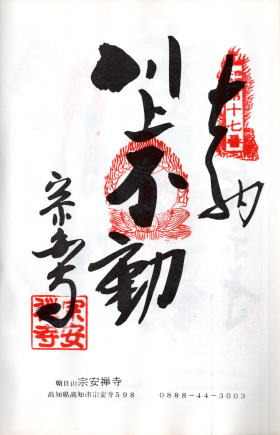 奉納
川上不動
宗安寺
宗安
禅寺
朝日山 宗安禅寺
高知県高知市宗安寺598 0888-44-3003